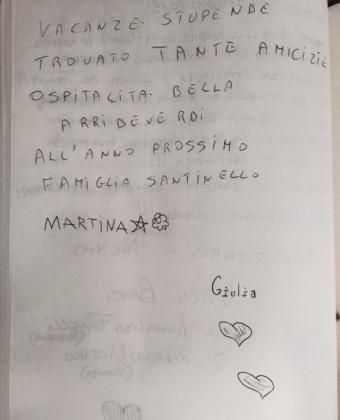 VACANZE. STUPENDE
TROVATO TANTE AMICIZIE
OSPITALITA. BELLA
ARRIDEVERDI
ALL'ANNO PROSSIMO
FAMIGLIA SANTINELLO
MARTINA
Giulia